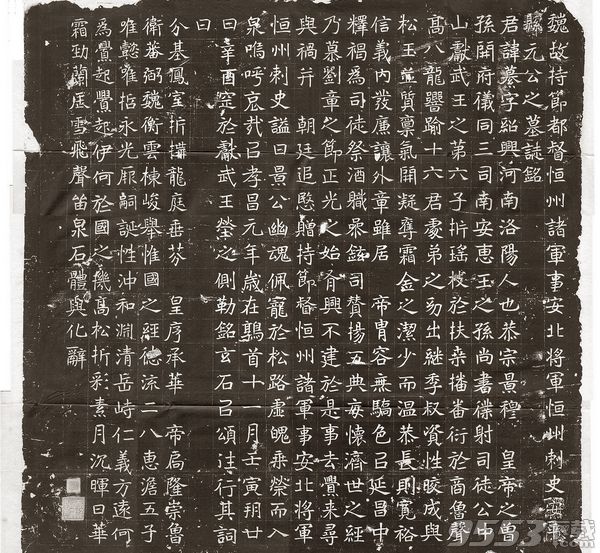 魏故持節都督恒州諸軍事安北將軍恒州刺史平
縣元公之墓誌銘
君諱纂字紹興河南洛陽人也恭宗景穆 皇帝之曾
孫開府儀同三司南安惠王之孫尚書僕射司徒公中
山獻武王之第六子折瑶枝於扶桒播番衍於商魯聲
髙八龍譽踰十六君處弟之易出継季叔資性皎成與
松玉並質稟氣開凝霜金之潔少而温恭長則寬裕
信義内發廉讓外章雖居 帝胄容無驕色㠯延昌中
釋褐爲司徒祭酒職叅鉉司賛揚五典每懷濟世之經
乃慕劉章之節正光之始興不建於是事去釁来尋
與禍并 朝廷追愍贈持節督恒州諸軍事安北將軍
恒州刺史謚曰景公幽魂佩寵於松路虚魄乘榮而
泉嗚呼哀㢤㠯孝昌元年歲在鶉首十一月壬寅朔廿
日辛酉窆於獻武王塋之側勒銘玄石㠯頌往行其詞
曰
分基鳳室折龍庭垂芬 皇序承華 帝扃隆崇魯
衛蕃弼魏衡雲棟峻舉惟國之經德流二八惠澹五子
唯懿唯哲永光厥嗣誕性沖和淵清岳峙仁義方遠何
爲釁起釁起伊何於國之機髙松折彩素月沉暉日華
霜劲蘭庭雪飛聲留泉石體與化辭